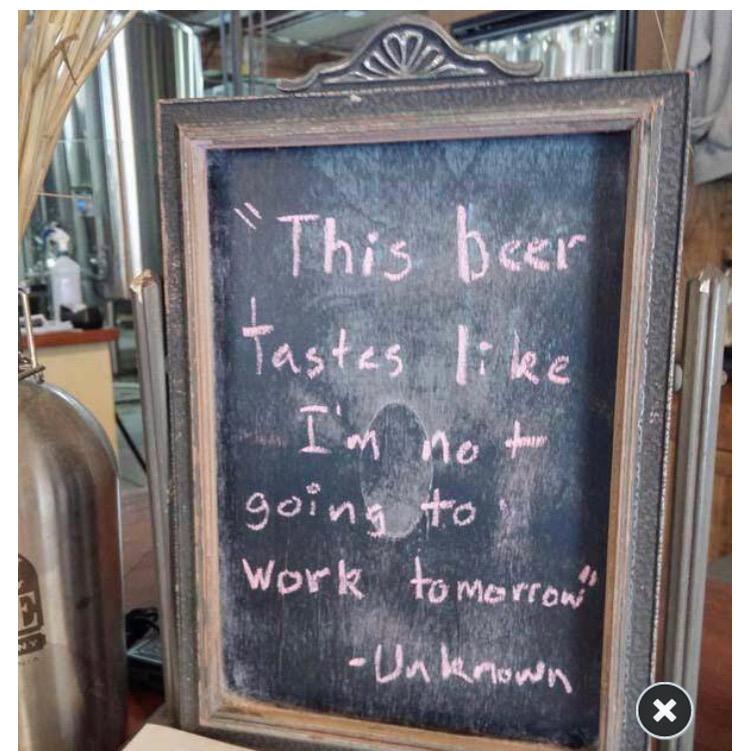 "This beer
tastes like
I'm not
going to
work tomorrow"
-Unknown